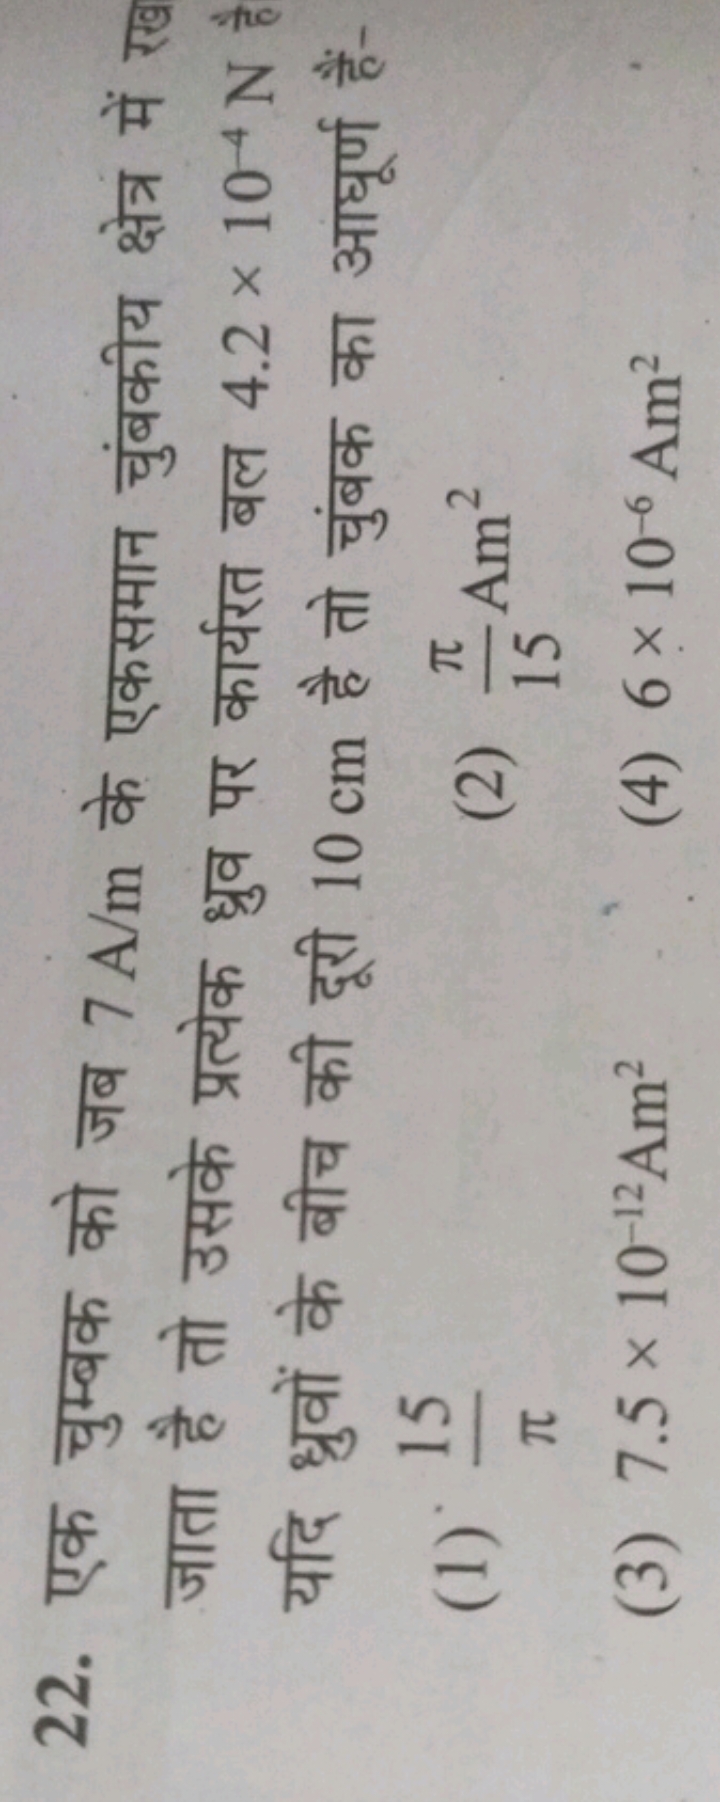 22. एक चुम्बक को जब 7 A/m के एकसमान चुंबकीय क्षेत्र में रख
जाता है तो उसके प्रत्येक ध्रुव पर कार्यरत बल 4.2 × 10⁻⁴ N है
यदि ध्रुवों के बीच की दूरी 10 cm है तो चुंबक का आघूर्ण हैं-
(1) 15/π (2) π/15 Am²
(3) 7.5 × 10⁻¹² Am² (4) 6 × 10⁻⁶ Am²